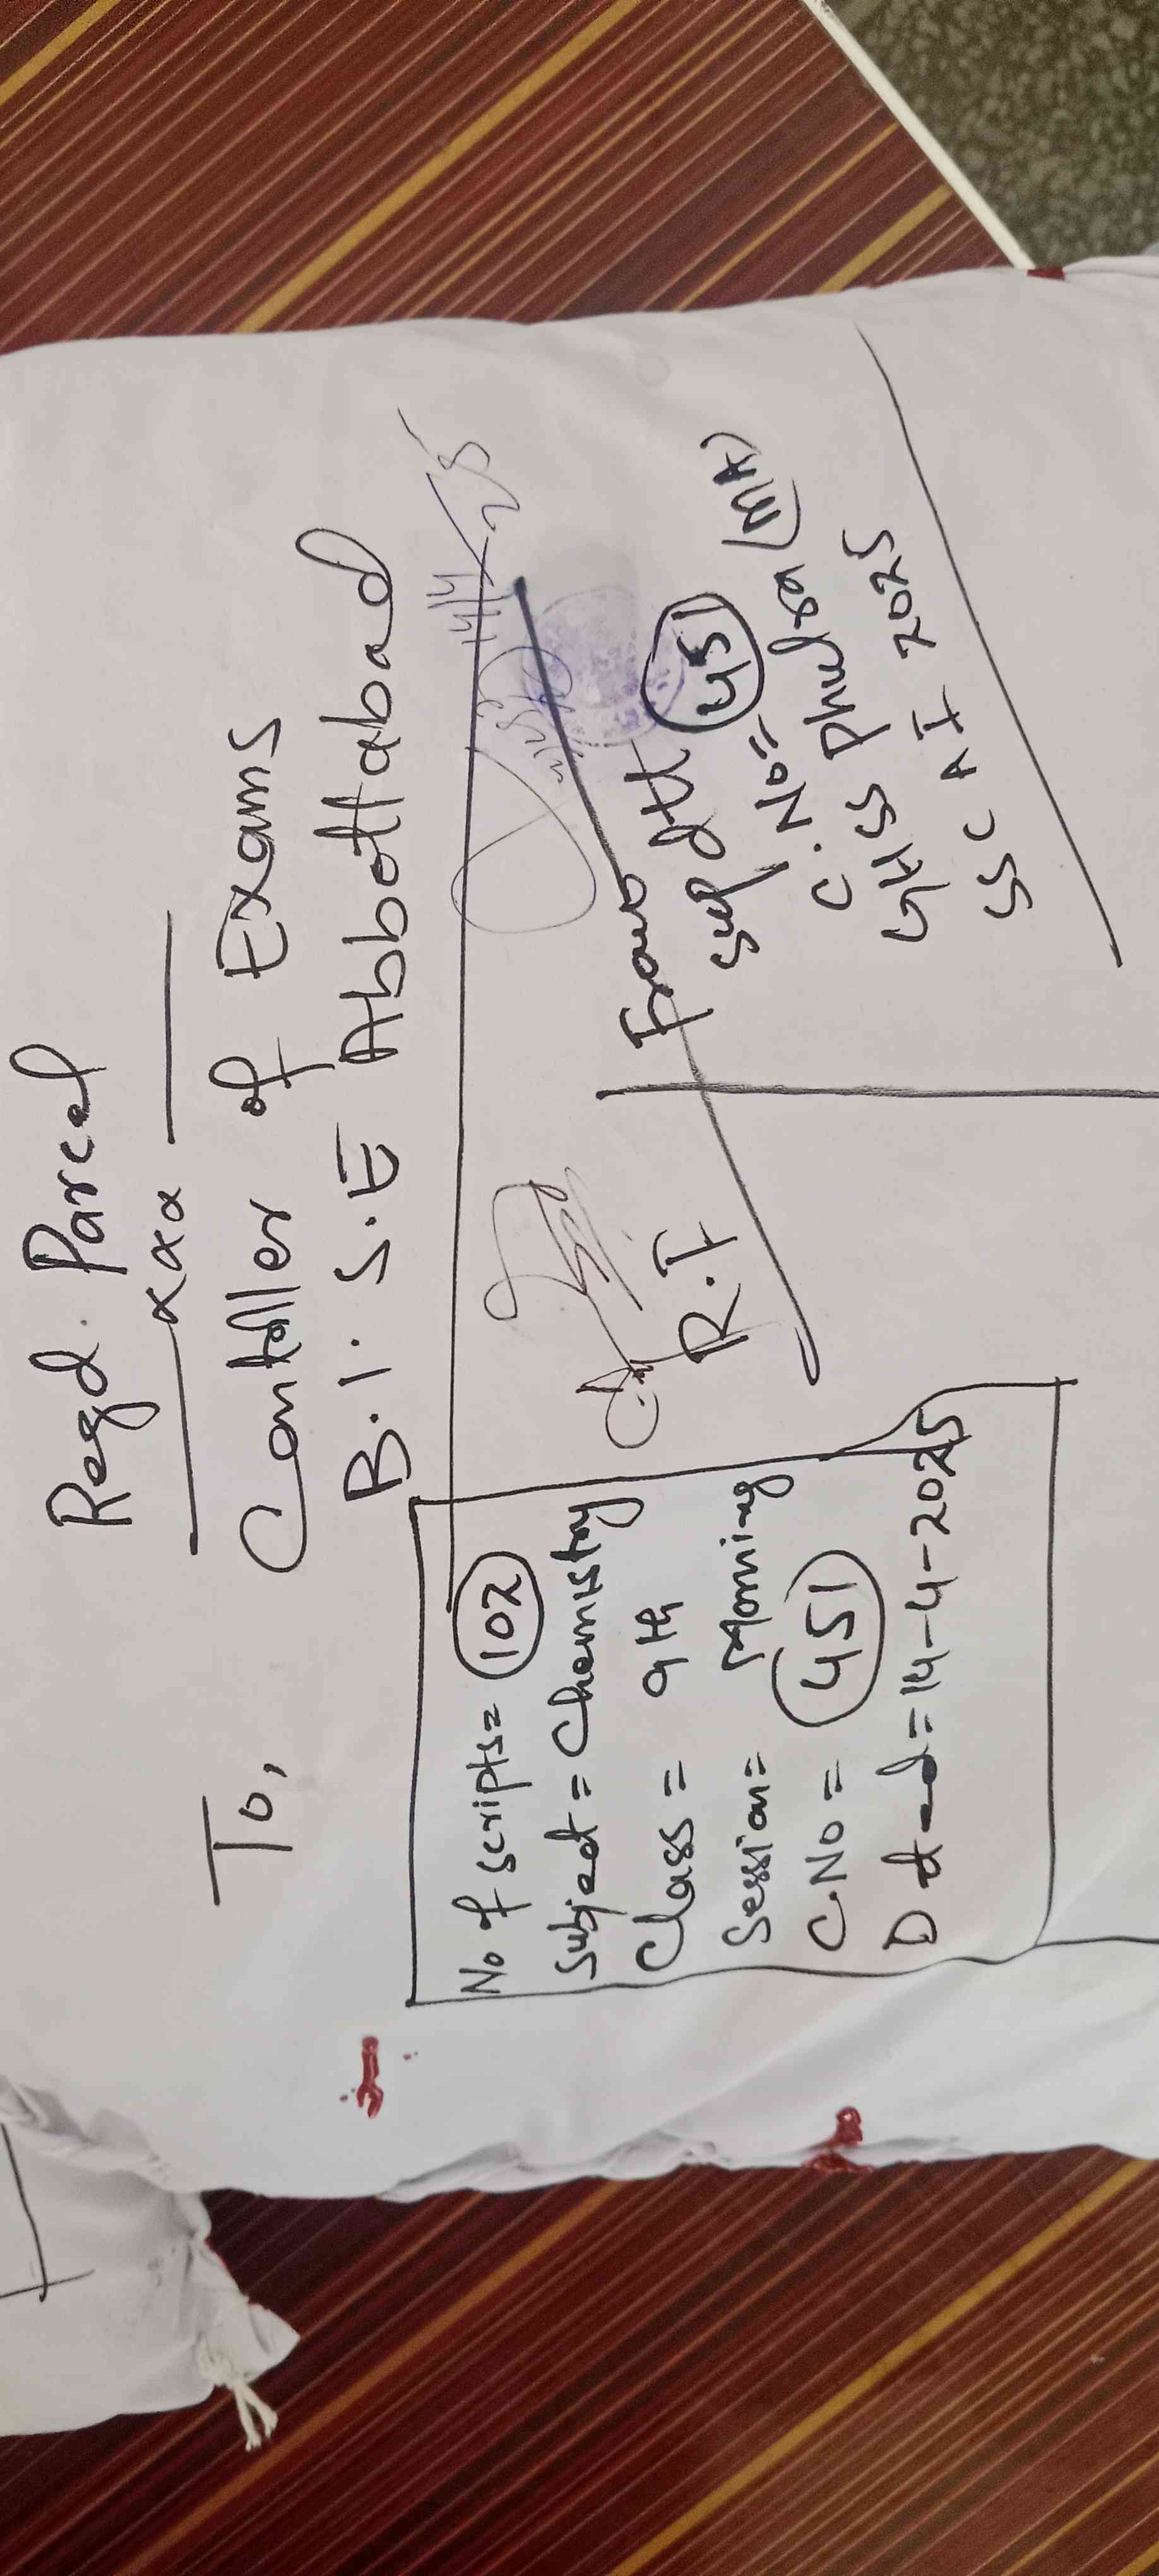 Regd. Parcel
xxx
To,
Contoller of Exams
B.I.S.E Abbottabad
No of scripts= 102
Subject = Chemistry
Class = 9th
Session= Morning
C.No = 451
Dted=14-4-2025
R.I
14/4/25
From
Supdtt
C.No= 451
GHSS Phulra (MA)
SSC A I 2025